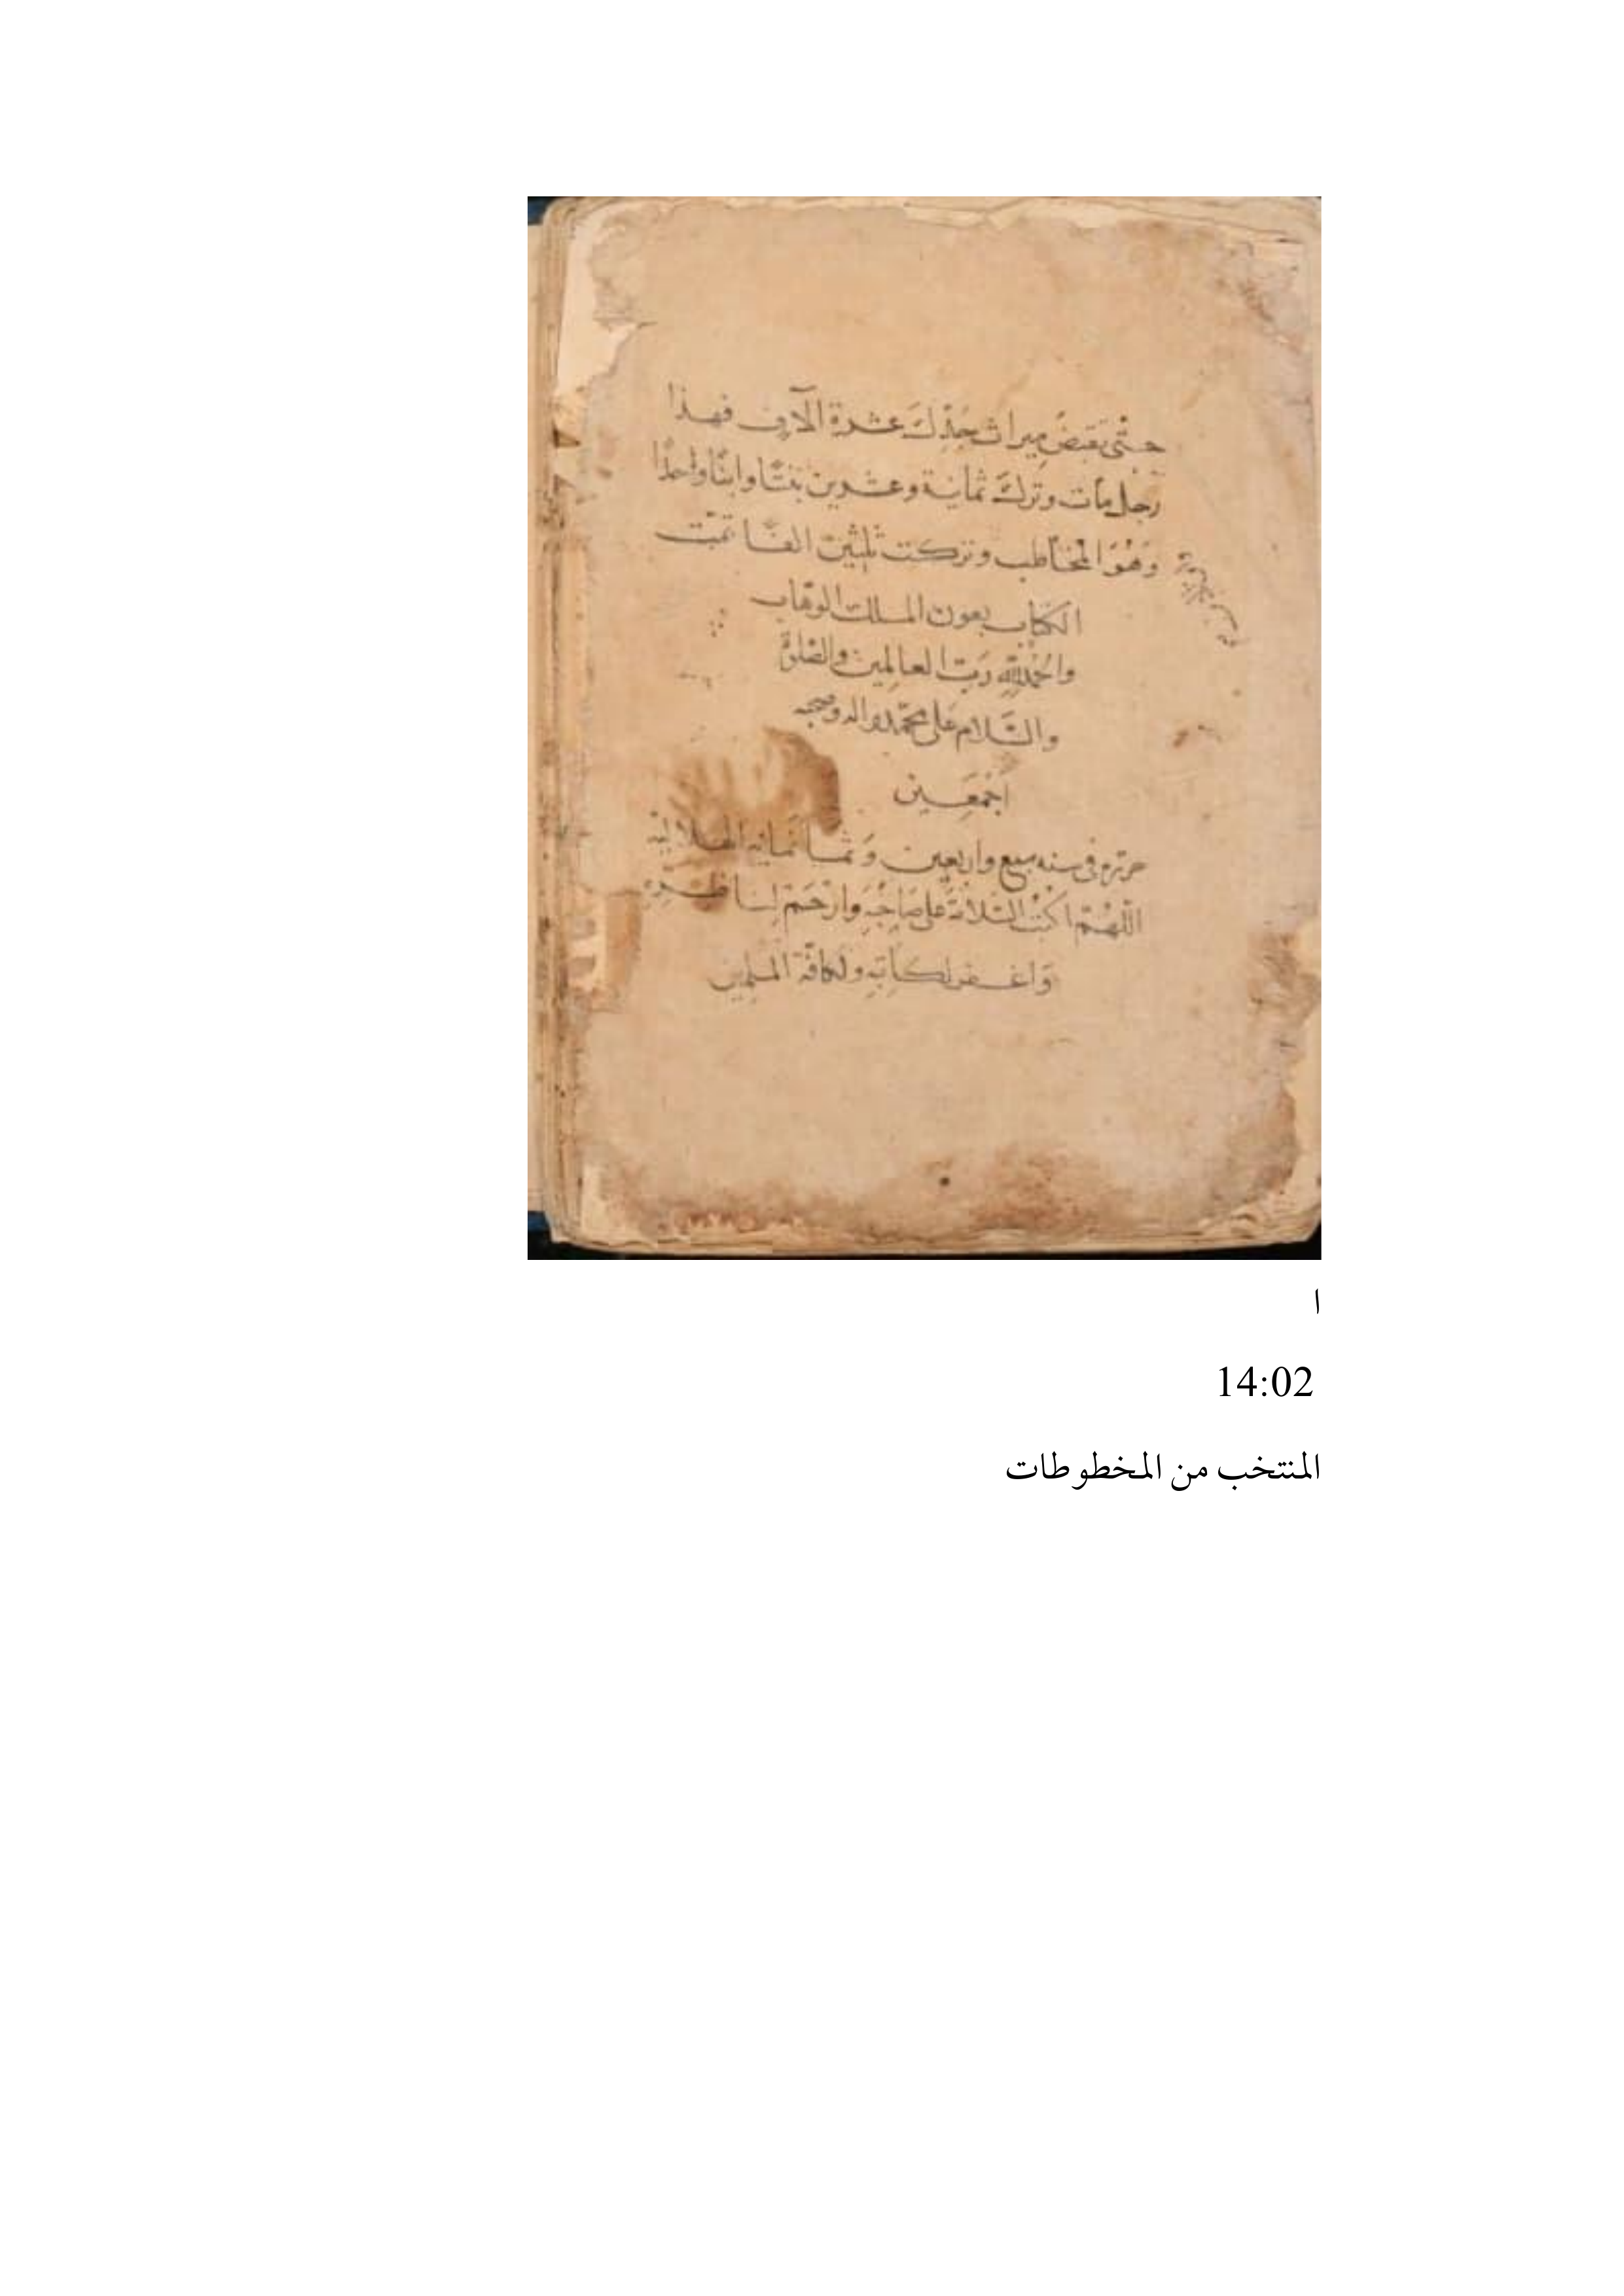 حتّى تقبض ميراث جدّك عشرة الآف فهذا
رجل مات وترك ثمانية وعشرين بنتًا وابنًا واحدًا
وهو المخاطب وتركت ثلثين الفا تمّت
الكتاب بعون الملك الوهّاب
والحمد لله ربّ العالمين والصّلوة
والسّلام على محمّد واله وصحبه
اجمعين
حرّره فى سنه سبع واربعين وثما نمائه الهلاليّه
اللّهمّ اكتب السّلامة على صاحبه وارحم لنا ظره
واغفر لكاتبه ولكافّة المسلمين
ا
14:02
المنتخب من المخطوطات